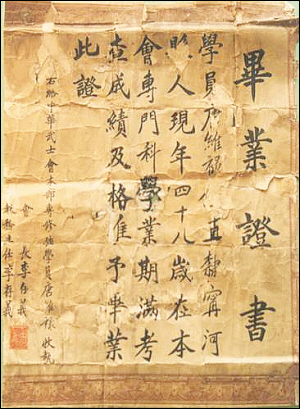 畢業證書
學員唐維祿直隸甯河
縣人現年四十八歲在本
會專門科學業期滿考
查成績及格准予畢業
此證
右給中華武士會本部專修班學員唐維祿收執
會長李存義
教務主任李存義